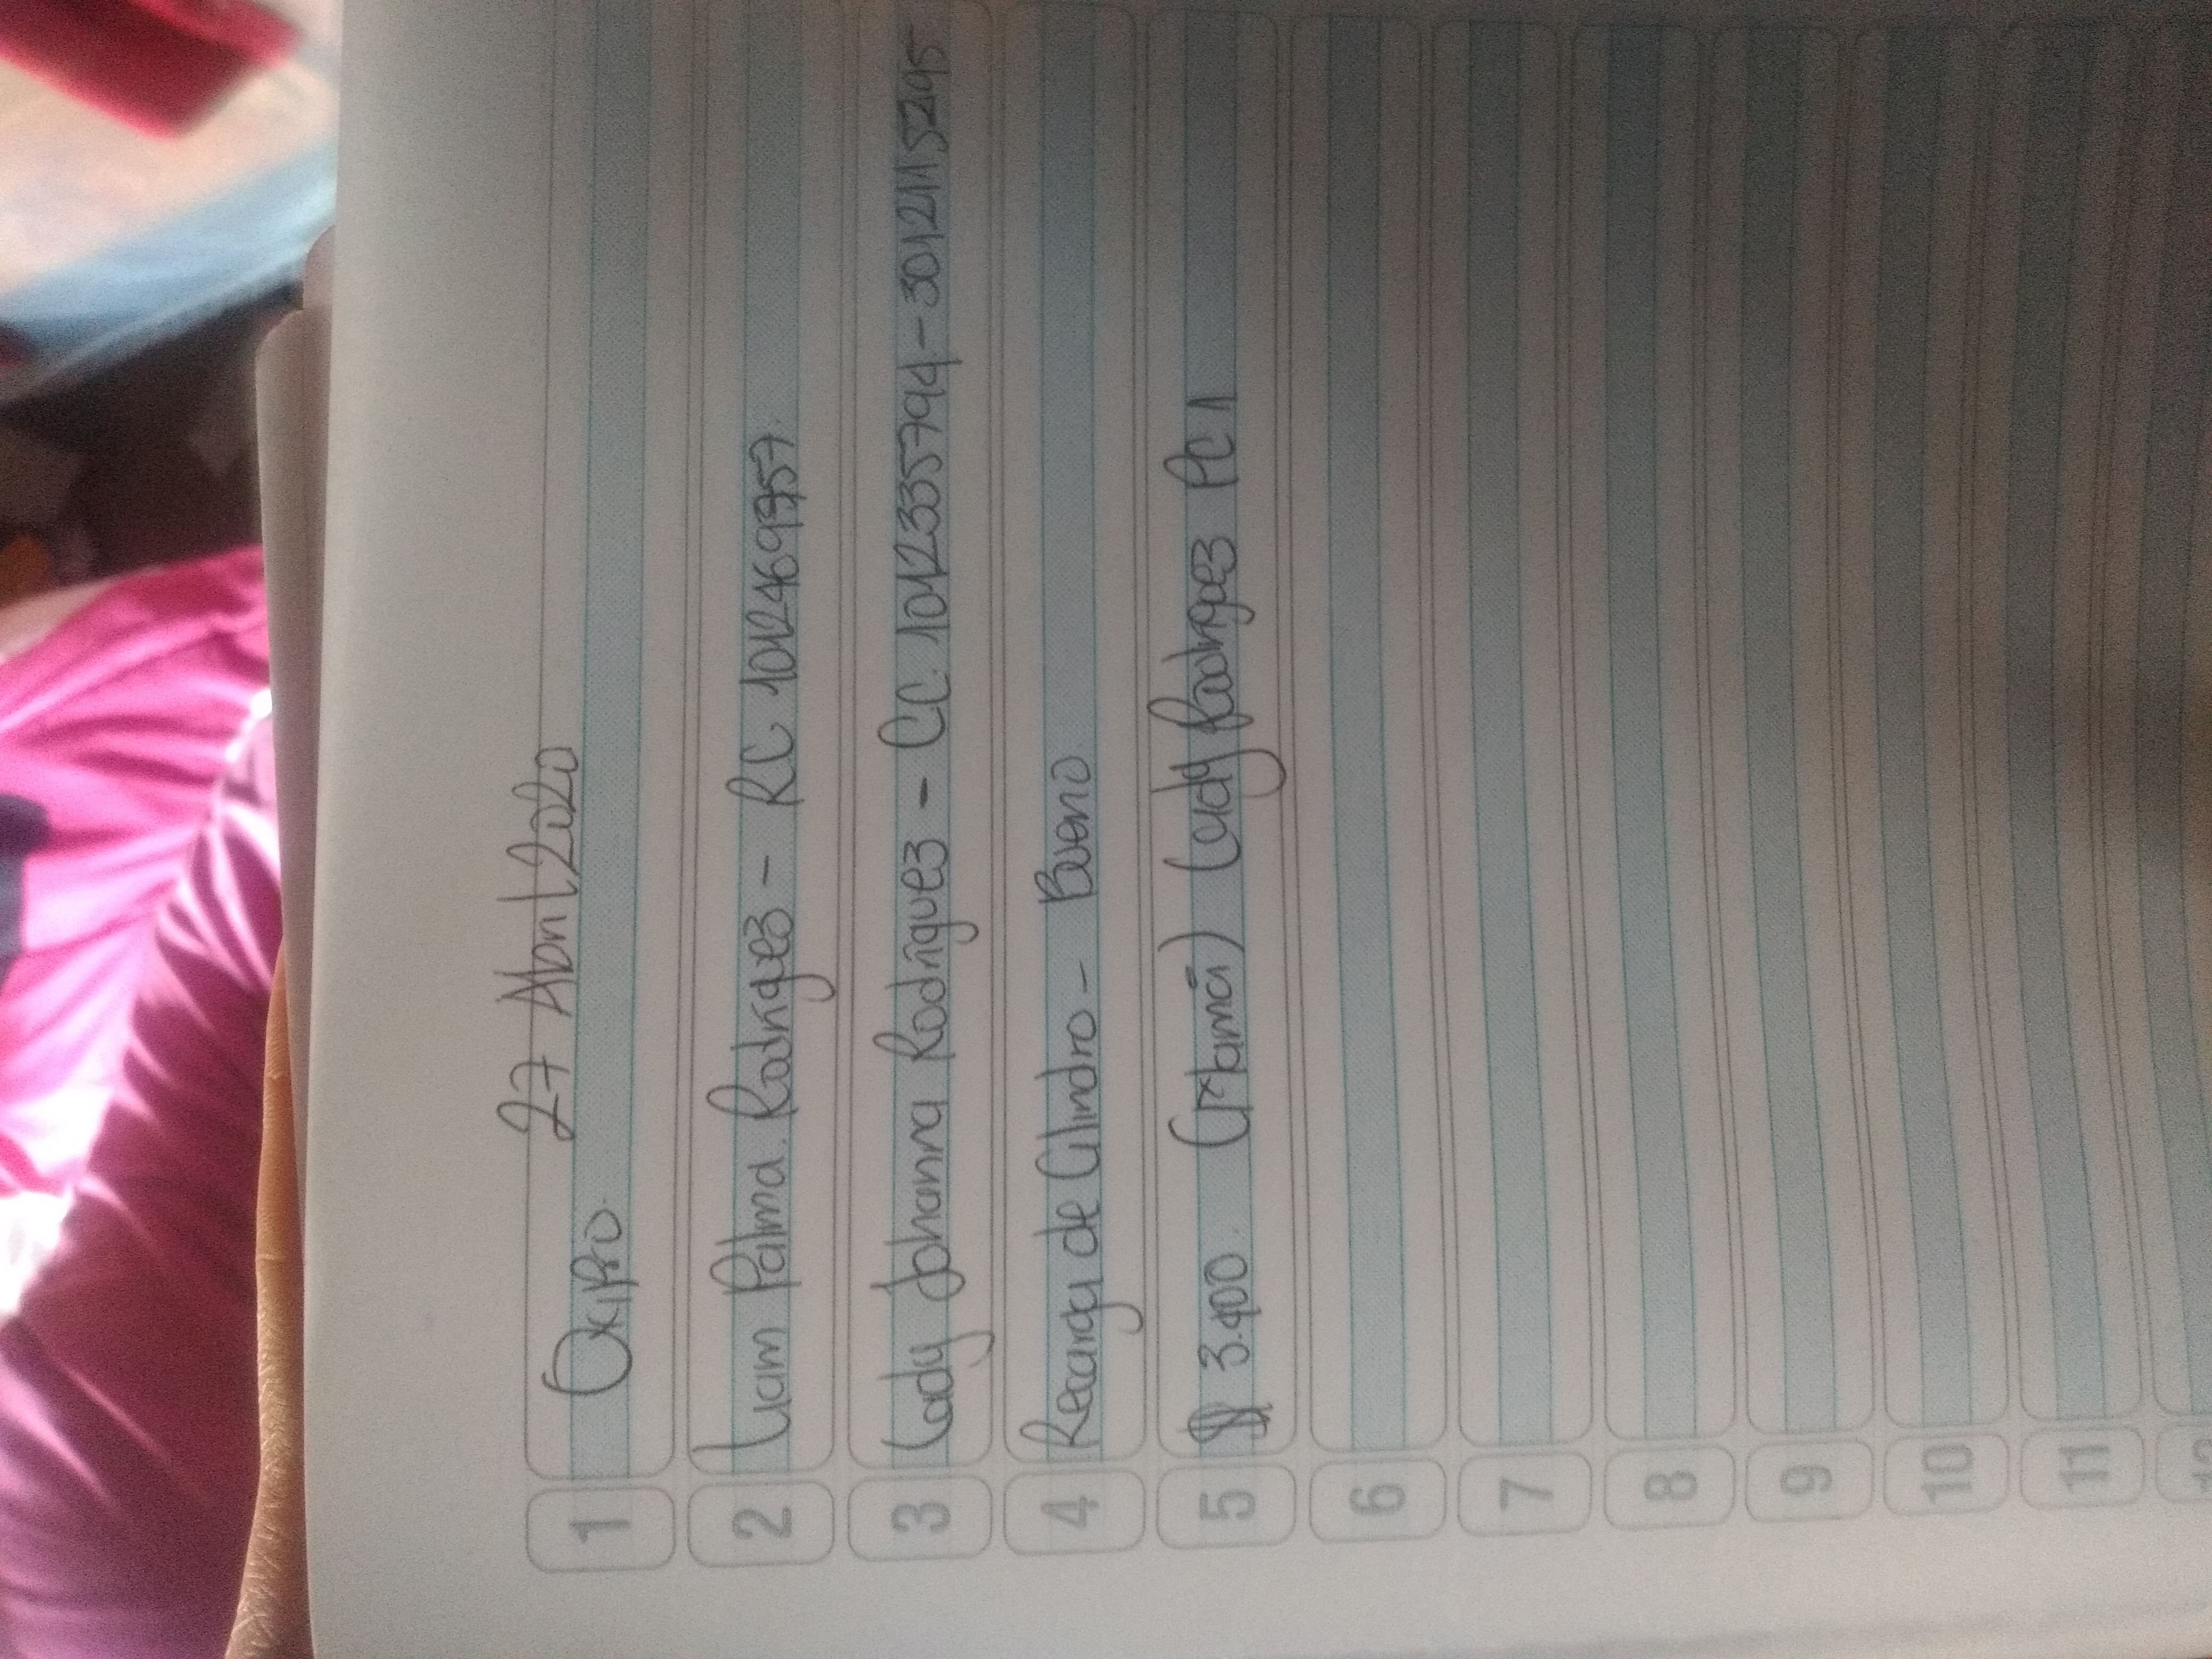 27 Abril 2020
1 Oxipro.
2 Liam Palma. Rodriguez - RC 1012469957.
3 Lady Johanna Rodriguez - CC. 1012335794 - 3012115295
4 Recarga de Cilindro - Bueno.
5 $ 3.400. (mamá) Lady Rodriguez PC 1
6
7
8
9
10
11